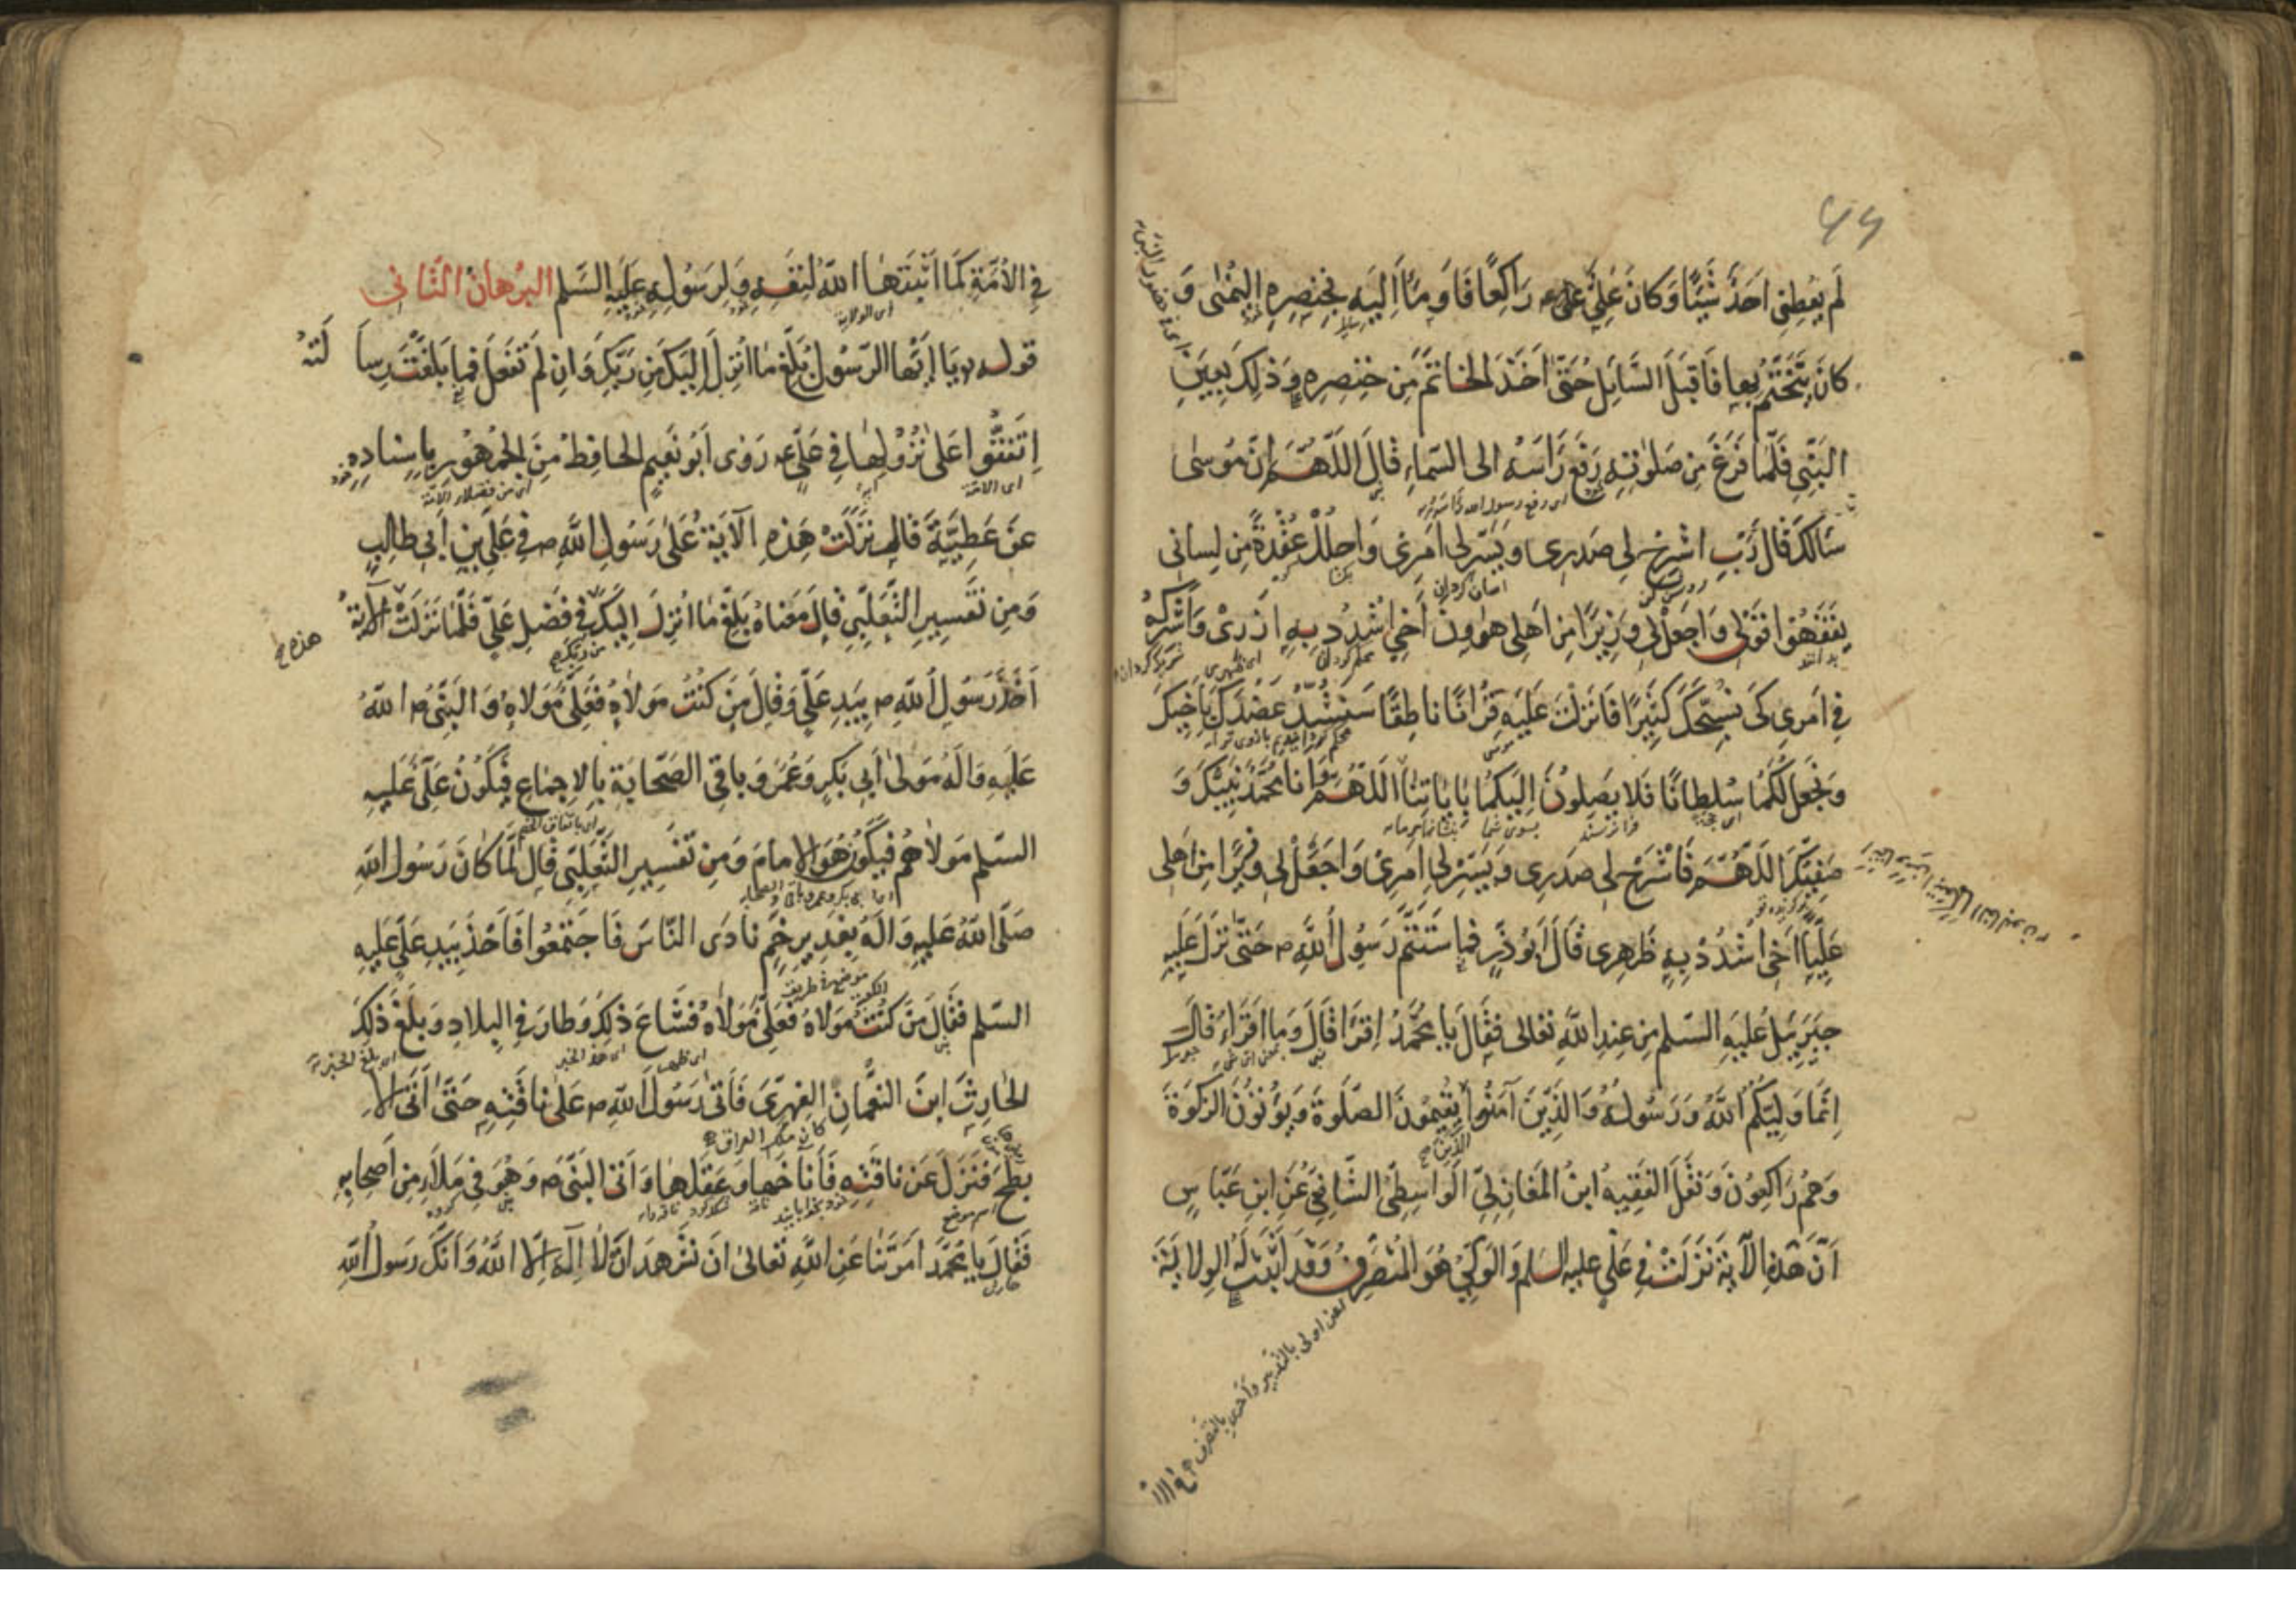 ٤٦
لَم يُعطِنى اَحَدٌ شَيئًا وَكانَ عَلِىٌّ عليه رَاكِعًا فَاَومَأَ اِلَيهِ بِخِنصِرِهِ اليُمنٰى وَ
كانَ يَتَخَتَّمُ بها فَاَقبَلَ السَّائِلُ حَتّىٰ اَخَذَ الخاتَمَ مِن خِنصِرِهِ وَذٰلِكَ بِعَينِ
النَّبِىِّ فَلَمّا فَرَغَ مِن صَلوٰتِهِ رَفَعَ رَاسَهُ الى السَّماءِ فَقالَ اَللّٰهُمَّ اِنَّ مُوسٰى
سَاَلَكَ قالَ رَبِّ اشرَح لى صَدرِى وَيَسِّر لى اَمرِى وَاحلُل عُقدَةً مِن لِسانى
يَفقَهُوا قَولى وَاجعَل لى وَزيرًا مِن اَهلى هٰرونَ اَخى اُشدُد بِهِ اَزرى وَاَشرِكهُ
فى اَمرِى كَى نُسَبِّحَكَ كَثيرًا فَاَنزَلتَ عَلَيهِ قُرانًا ناطِقًا سَنَشُدُّ عَضُدَكَ بِاَخيكَ
وَنَجعَلُ لَكُما سُلطانًا فَلا يَصِلُونَ اِلَيكُما بِاٰياتِنا اَللّٰهُمَّ وَانا مُحَمَّدٌ نَبِيُّكَ وَ
صَفِيُّكَ اَللّٰهُمَّ فَاشرَح لى صَدرِى وَيَسِّر لى اَمرِى وَاجعَل لى وَزيرًا مِن اَهلى
عَلِيًّا اَخى اشدُد بِهِ ظَهرِى قالَ اَبُو ذَرٍّ فَما اسْتَتَمَّ رَسُولُ اللّٰهِ ص حَتّىٰ نَزَلَ عَلَيهِ
جَبرَئيلُ عَلَيهِ السَّلم مِن عِندِ اللّٰهِ تَعالى فَقالَ يا مُحَمَّدُ اِقرَأ قالَ وَما اَقرَاءُ قالَ
اِنَّما وَلِيُّكُمُ اللّٰهُ وَرَسُولُهُ وَالَّذينَ اٰمَنُوا يُقيمُونَ الصَّلوٰةَ وَيُؤتُونَ الزَّكوٰةَ
الَّذين صح
وَهُم رَاكِعُونَ وَنَقَلَ الفَقيهُ ابنُ المَغازِلِىِّ الواسِطِىُّ الشّافِعِىُّ عَنِ ابنِ عَبّاسٍ
اَنَّ هٰذِهِ الاٰيَةَ نَزَلَت فى عَلِىٍّ عليه السلم وَالوَلِىُّ هُوَ المُتَصَرِّفُ وَقَد اَثبَتَ لَهُ الوِلايَةَ
يعنى اولى بالتدبير واحرى بالتصرف
فِى الاُمَّةِ كَما اَثبَتَها اللّٰهُ لِنَفسِهِ وَلِرَسُولِهِ عَلَيهِ السَّلم البُرهانُ الثّانى
اى الولاية
قوله يا اَيُّهَا الرَّسُولُ بَلِّغ ما اُنزِلَ اِلَيكَ مِن رَبِّكَ وَاِن لَم تَفعَل فَما بَلَّغتَ رِسالَتَهُ
اِتَّفَقُوا عَلىٰ نُزُولِها فى عَلِىٍّ عه رَوٰى اَبُو نُعَيمٍ الحافِظُ مِنَ الجُمهُورِ بِاِسنادِهِ
عَن عَطِيَّةَ قالَ نَزَلَت هٰذِهِ الاٰيَةُ عَلىٰ رَسُولِ اللّٰهِ ص فى عَلِىِّ بنِ اَبى طالِبٍ
وَمِن تَفسيرِ الثَّعلَبِىِّ قالَ مَعناهُ بَلِّغ ما اُنزِلَ اِلَيكَ فى فَضلِ عَلِىٍّ فَلَمّا نَزَلَت الاٰيَةُ
من ربك صح
هذه صح
اَخَذَ رَسُولُ اللّٰهِ ص بِيَدِ عَلِىٍّ وَقالَ مَن كُنتُ مَولاهُ فَعَلِىٌّ مَولاهُ وَالنَّبِىُّ ص اللّٰهُ
عَلَيهِ وَاٰلِهِ مَولىٰ اَبى بَكرٍ وَعُمَرَ وَباقِى الصَّحابَةِ بِالاِجماعِ فَيَكُونُ عَلِىٌّ عَلَيهِ
السَّلم مَولاهُم فَيَكُونُ هُوَ الاِمامَ وَمِن تَفسيرِ الثَّعلَبِىِّ قالَ لَمّا كانَ رَسُولُ اللّٰهِ
صَلَّى اللّٰهُ عَلَيهِ وَاٰلِهِ بِغَديرِ خُمٍّ نادَى النّاسَ فَاجتَمَعُوا فَاَخَذَ بِيَدِ عَلِىٍّ عَلَيهِ
السَّلم فَقالَ مَن كُنتُ مَولاهُ فَعَلِىٌّ مَولاهُ فَشاعَ ذٰلِكَ وَطارَ فِى البِلادِ وَبَلَغَ ذٰلِكَ
الحارِثَ ابنَ النُّعمانِ الفِهرِىَّ فَاَتىٰ رَسُولَ اللّٰهِ ص عَلىٰ ناقَتِهِ حَتّىٰ اَتَى الا
كان ملك العراق
بطَحَ فَنَزَلَ عَن ناقَتِهِ فَاَناخَها وَعَقَلَها وَاَتَى النَّبِىَّ ص وَهُوَ فى مَلَاءٍ مِن اَصحابِهِ
اسم موضع
فَقالَ يا مُحَمَّدُ اَمَرتَنا عَنِ اللّٰهِ تَعالىٰ اَن نَشهَدَ اَن لا اِلٰهَ اِلّا اللّٰهُ وَاَنَّكَ رَسُولُ اللّٰهِ